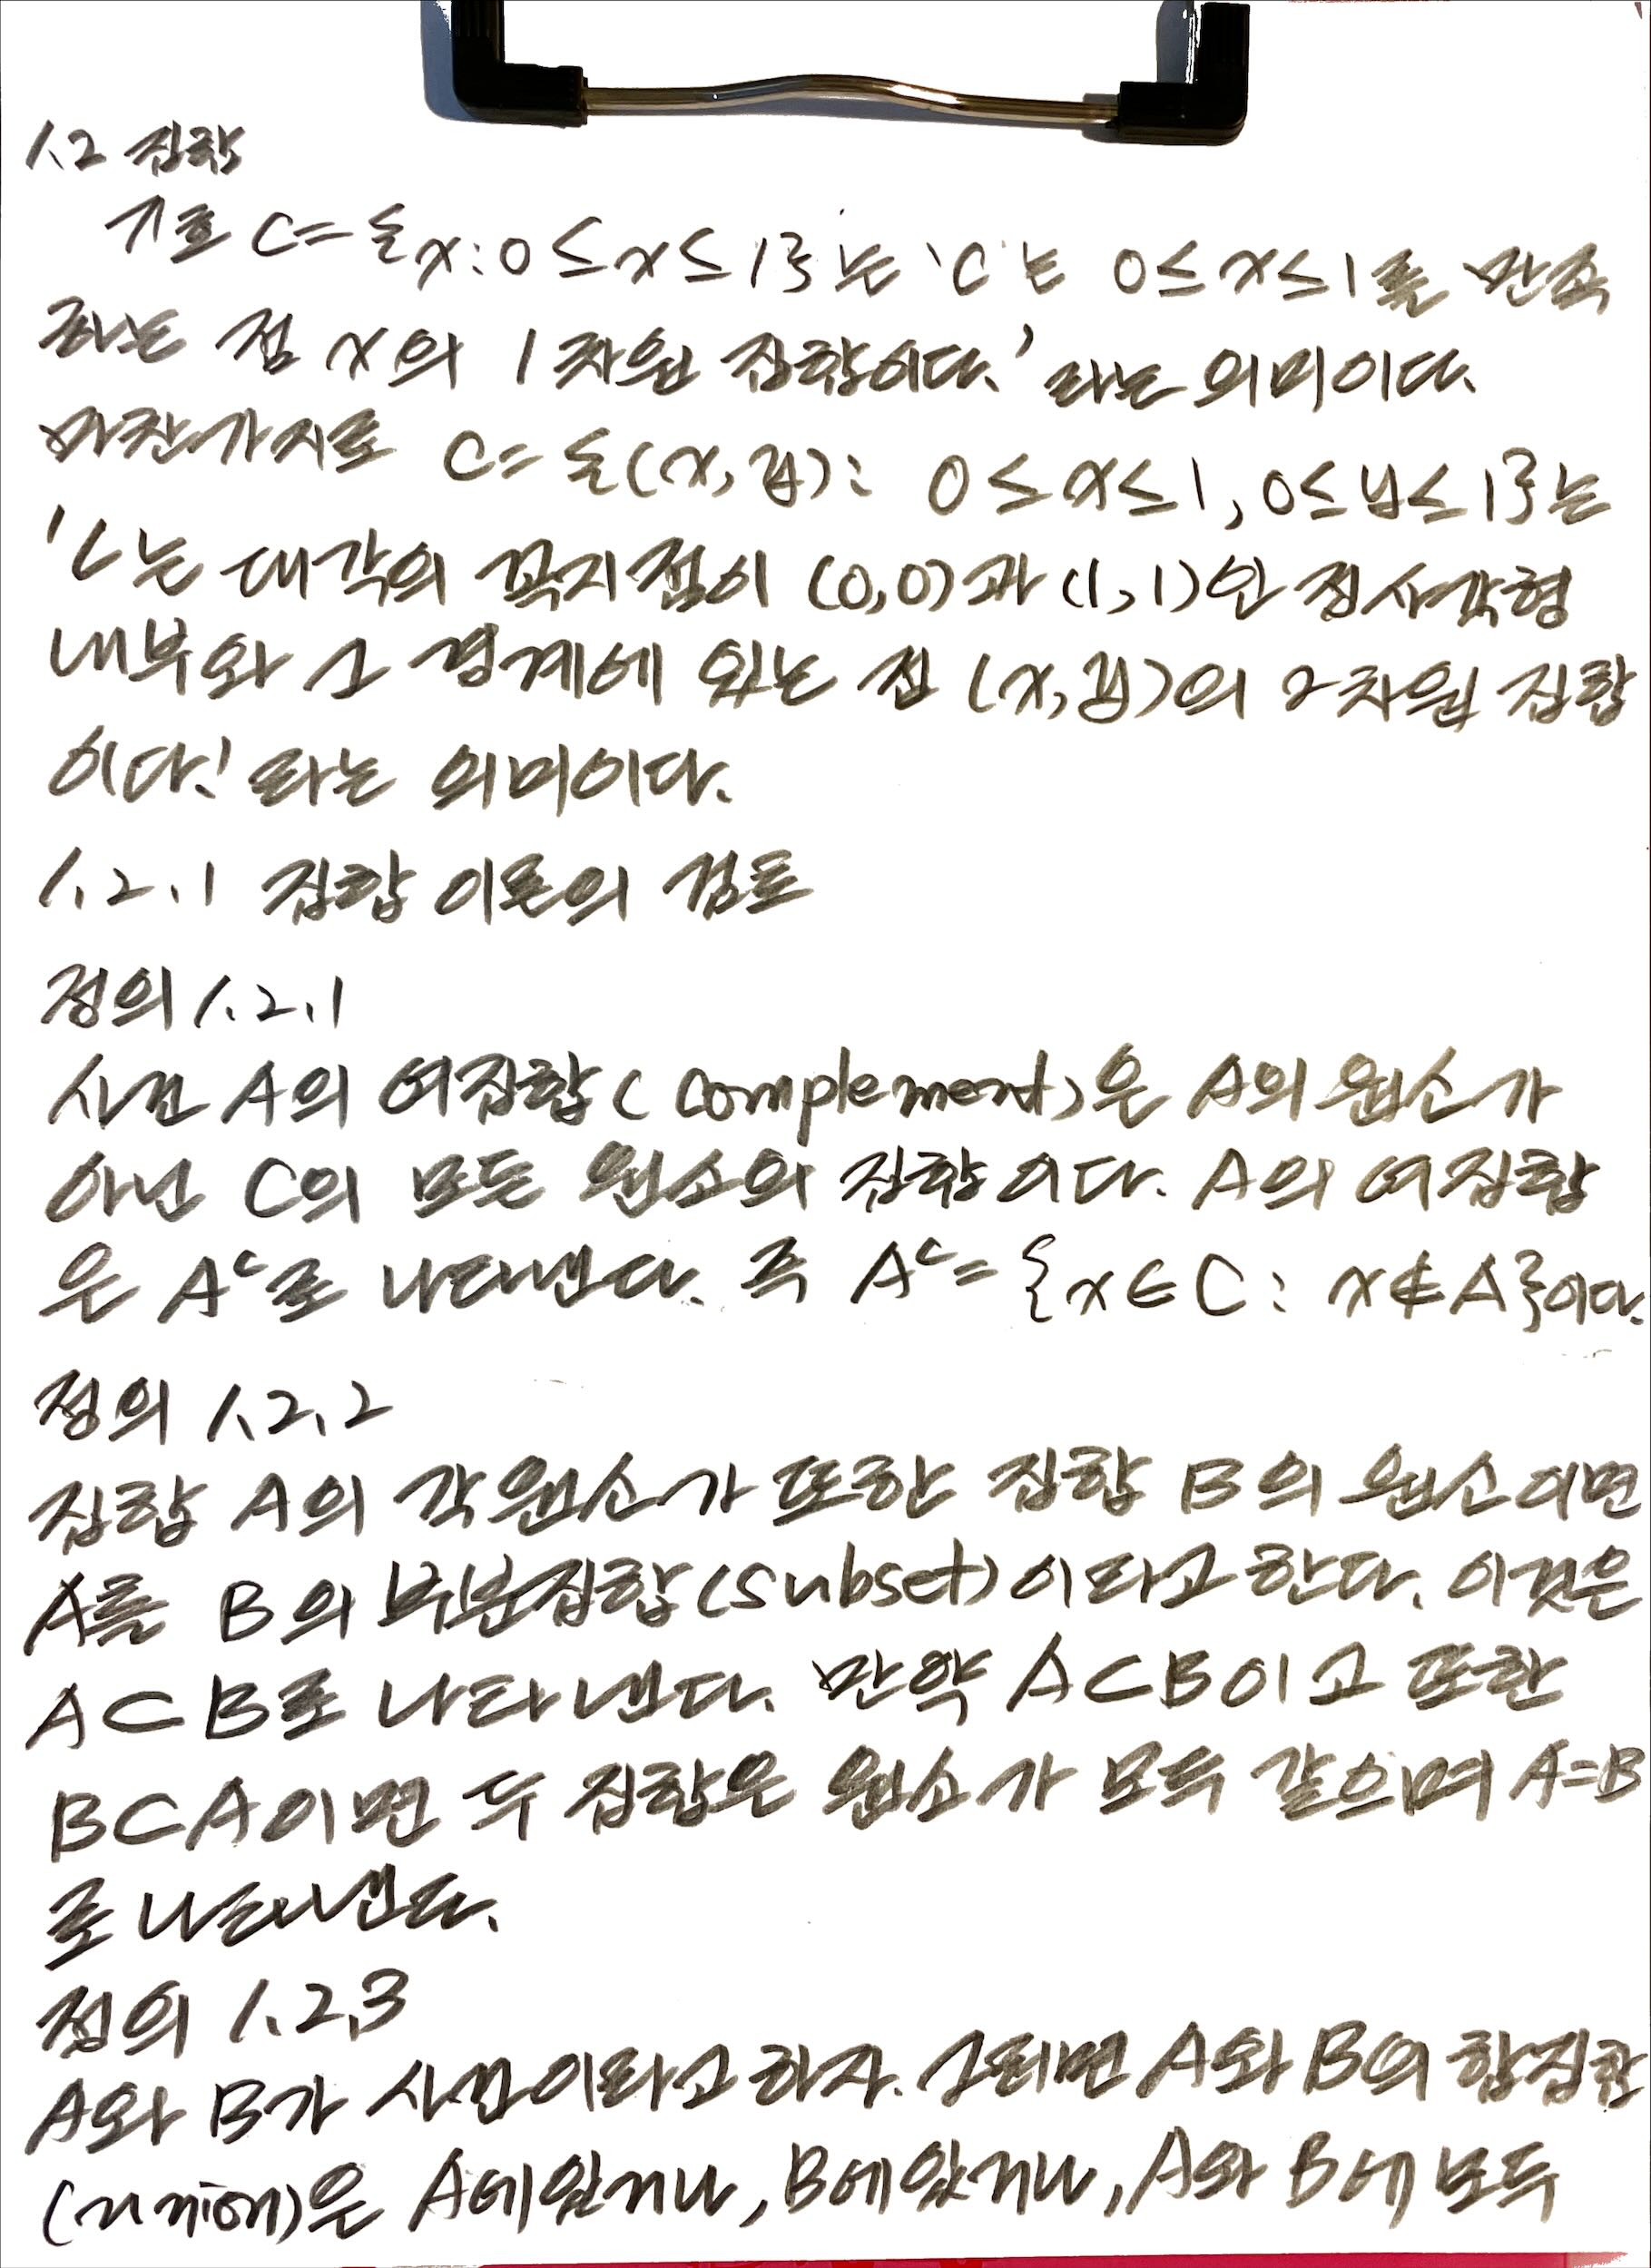 1.2 집합
기호 C = {x : 0 ≤ x ≤ 1}는 'C는 0 ≤ x ≤ 1를 만족
하는 점 x의 1차원 집합이다.' 라는 의미이다.
마찬가지로 C = {(x, y) : 0 ≤ x ≤ 1, 0 ≤ y ≤ 1}는
'C는 대각의 꼭지점이 (0,0)과 (1,1)인 정사각형
내부와 그 경계에 있는 점 (x, y)의 2차원 집합
이다.' 라는 의미이다.
1.2.1 집합 이론의 검토
정의 1.2.1
사건 A의 여집합(complement)은 A의 원소가
아닌 C의 모든 원소의 집합이다. A의 여집합
은 Aᶜ로 나타낸다. 즉 Aᶜ = {x ∈ C : x ∉ A}이다.
정의 1.2.2
집합 A의 각 원소가 또한 집합 B의 원소이면
A를 B의 부분집합(subset)이라고 한다. 이것은
A⊂B로 나타낸다. 만약 A⊂B이고 또한
B⊂A이면 두 집합은 원소가 모두 같으며 A=B
로 나타낸다.
정의 1.2.3
A와 B가 사건이라고 하자. 그러면 A와 B의 합집합
(union)은 A에 있거나, B에 있거나, A와 B에 모두